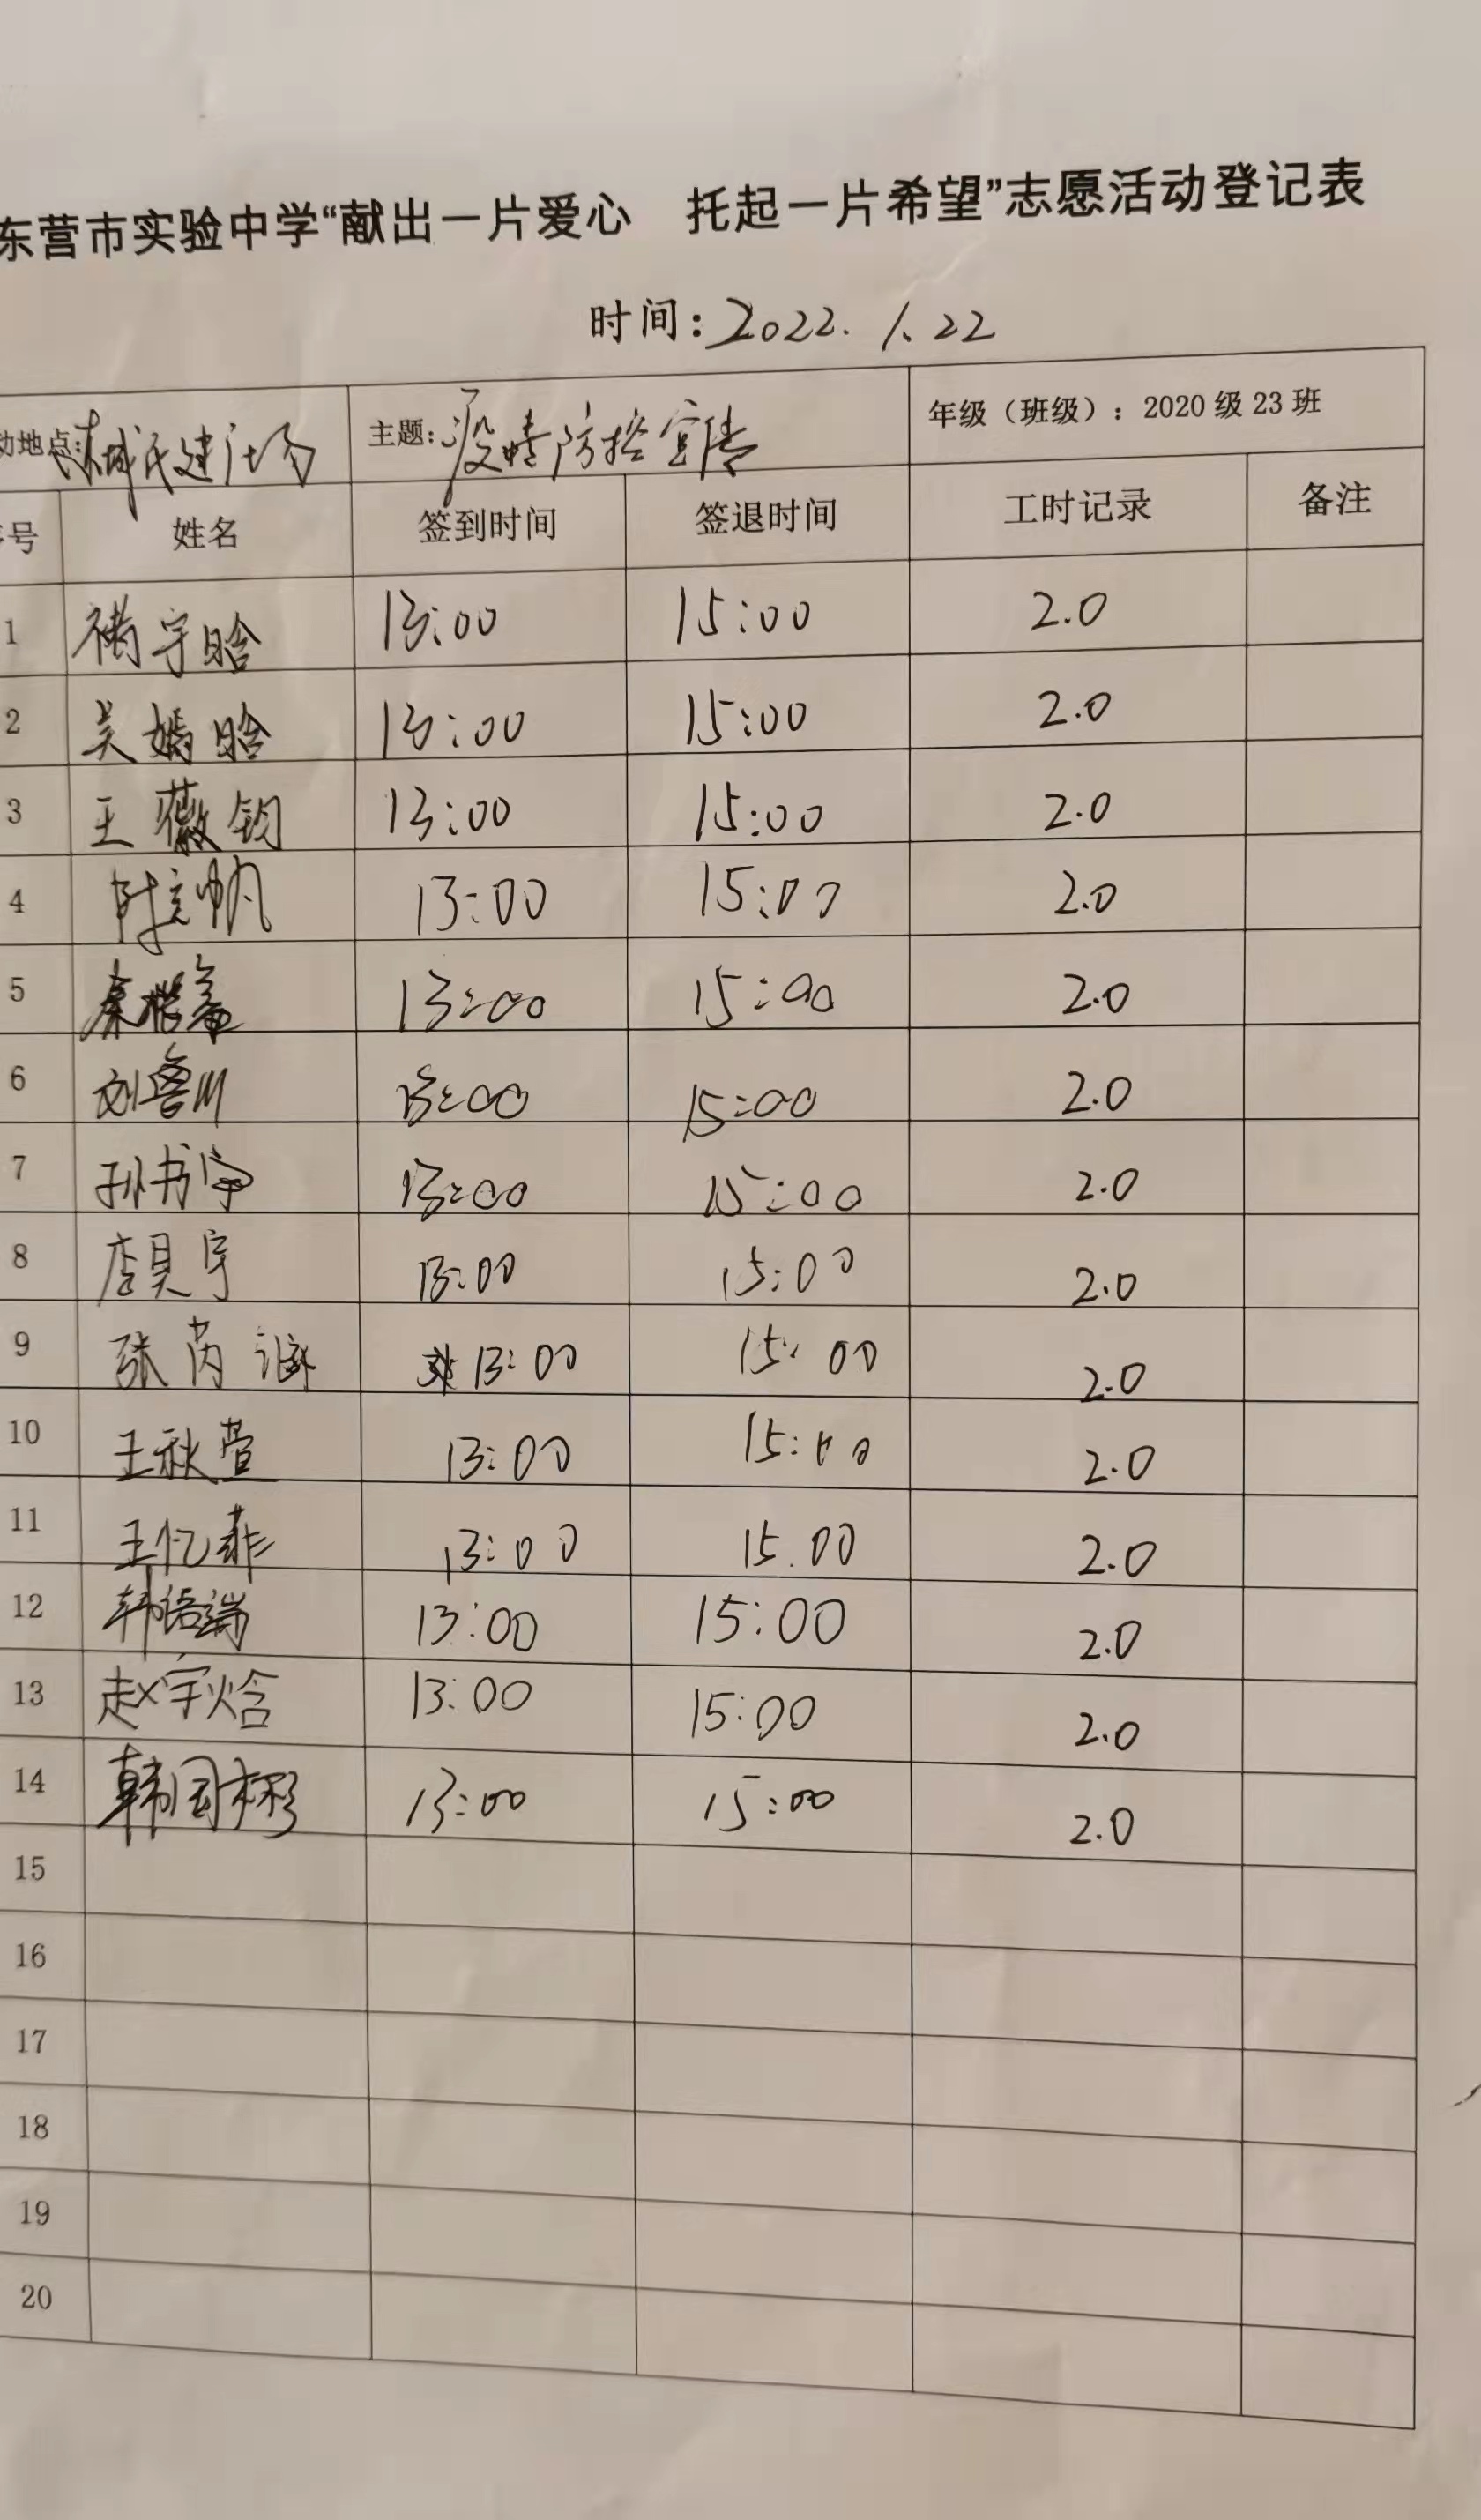 东营市实验中学“献出一片爱心 托起一片希望”志愿活动登记表
时间:2022.1.22
动地点: 东城民建广场 主题: 疫情防控宣传 年级（班级）：2020级23班
号 姓名 签到时间 签退时间 工时记录 备注
1 宇晗 13:00 15:00 2.0
2 吴嫣晗 13:00 15:00 2.0
3 王薇钧 13:00 15:00 2.0
4 帆 13:00 15:00 2.0
5 秦 13:00 15:00 2.0
6 刘鲁川 13:00 15:00 2.0
7 孙书宇 13:00 15:00 2.0
8 宇 13:00 15:00 2.0
9 张芮 13:00 15:00 2.0
10 王秋萱 13:00 15:00 2.0
11 王忆菲 13:00 15.00 2.0
12 韩语端 13:00 15:00 2.0
13 赵宇焓 13:00 15:00 2.0
14 韩国彬 13:00 15:00 2.0
15
16
17
18
19
20